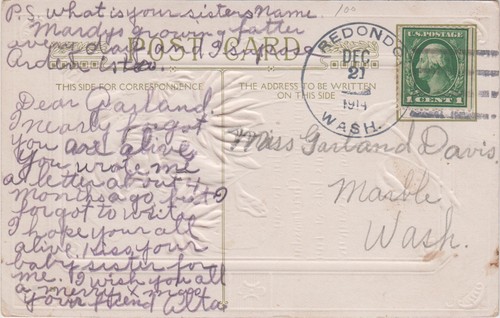 P.S. what is your sisters Name.
Mardys growing fatter
every day
POST CARD
THIS SIDE FOR CORRESPONDENCE
THE ADDRESS TO BE WRITTEN
ON THIS SIDE
REDONDO
DEC
21
1914
WASH.
U.S. POSTAGE
1 CENT 1
Dear Garland.
I nearly forgot
you are alive
You wrote me
a letter about 4
months ago, but I
forgot to write
I hope your all
alive. Kiss your
baby sister for
me. I wish you all
a merry x mass
your friend Alta
Miss Garland Davis
Marble
Wash.